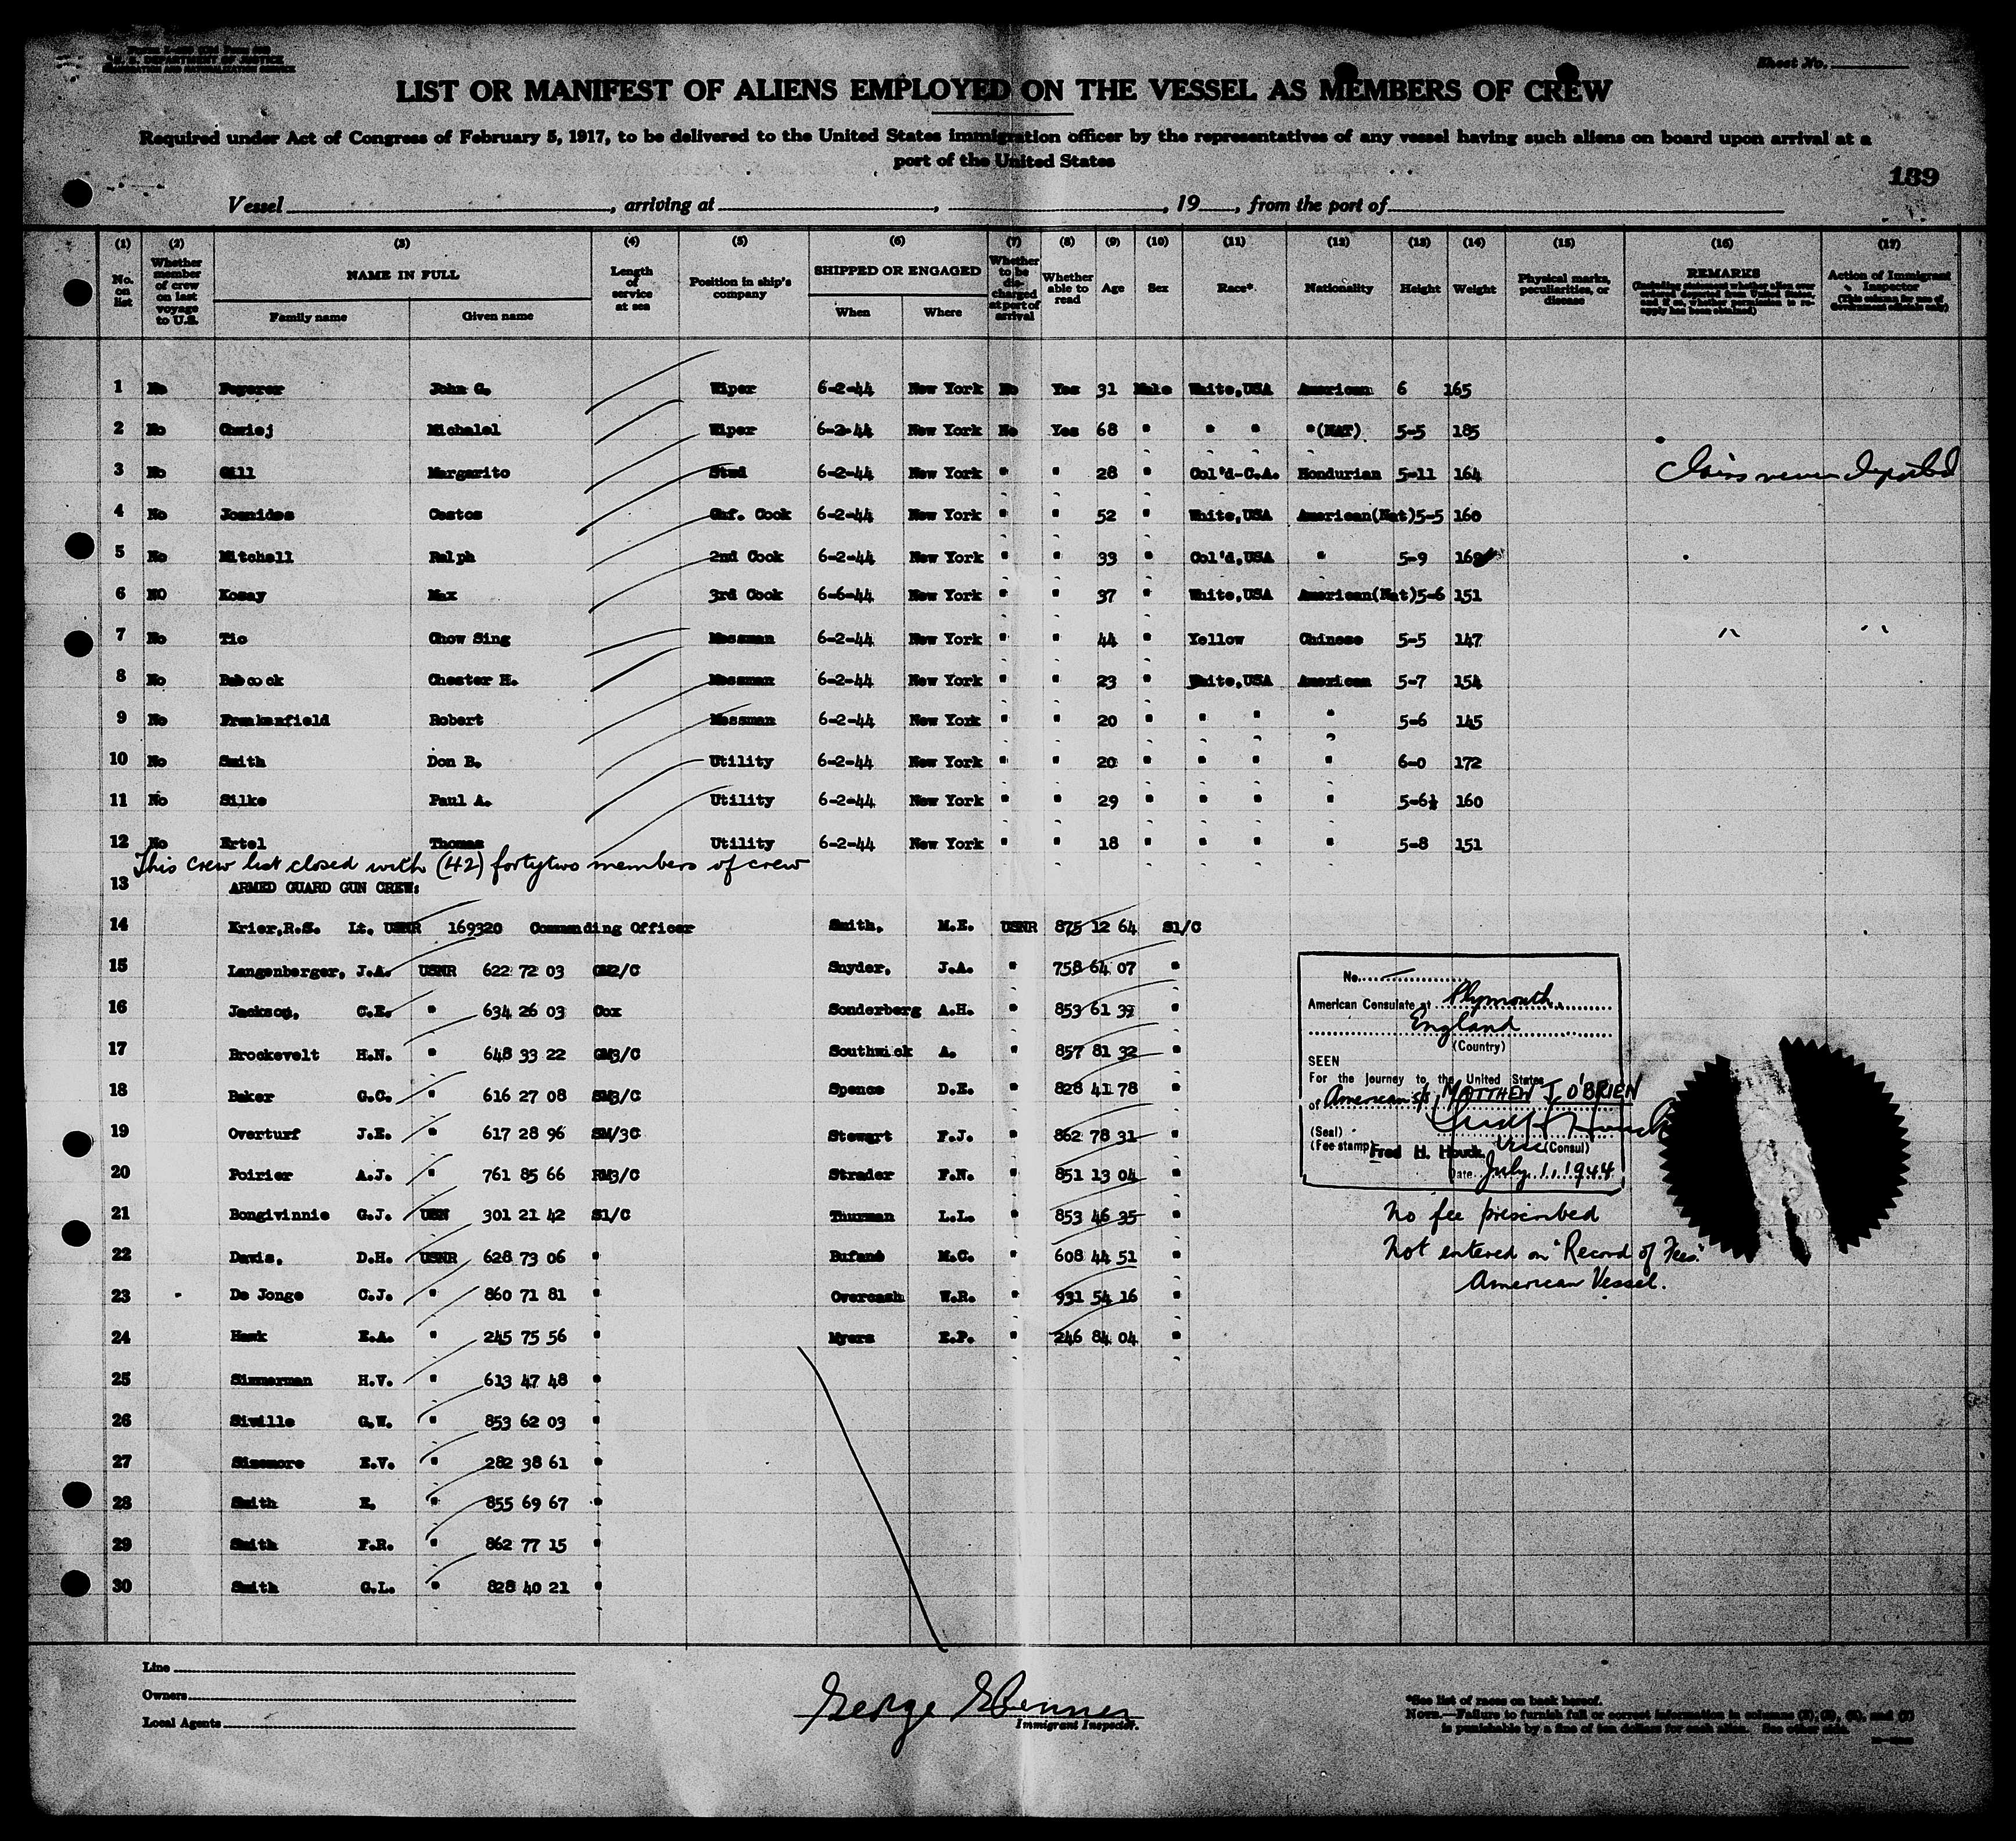 U. S. DEPARTMENT OF JUSTICE
IMMIGRATION AND NATURALIZATION SERVICE
Sheet No.
LIST OR MANIFEST OF ALIENS EMPLOYED ON THE VESSEL AS MEMBERS OF CREW
Required under Act of Congress of February 5, 1917, to be delivered to the United States immigration officer by the representatives of any vessel having such aliens on board upon arrival at a
port of the United States
139
Vessel , arriving at , , 19 , from the port of
(1) (2) (3) (4) (5) (6) (7) (8) (9) (10) (11) (12) (13) (14) (15) (16) (17)
No. on list Whether member of crew on last voyage to U.S. NAME IN FULL Family name Given name Length of service at sea Position in ship's company SHIPPED OR ENGAGED When Where Whether to be discharged at port of arrival Whether able to read Age Sex Race* Nationality Height Weight Physical marks, peculiarities, or disease REMARKS (Including statement whether alien ever ordered deported from United States, and if so, whether permission to reapply has been obtained) Action of Immigrant Inspector (This column for use of Government officials only)
1 No John G. Wiper 6-2-44 New York No Yes 31 Male White,USA American 6 165
2 No Michalel Wiper 6-2-44 New York No Yes 68 " " " "(NAT) 5-5 185
3 No Gill Margarito 6-2-44 New York " " 28 " Col'd-C.A. Hondurian 5-11 164 Claims never deported
4 No Joanides Costos Cook 6-2-44 New York " " 52 " White,USA American(Nat)5-5 160
5 No Mitchell Ralph 2nd Cook 6-2-44 New York " " 33 " Col'd,USA " 5-9
6 NO Kosay Max 3rd Cook 6-6-44 New York " " 37 " White,USA American(Nat)5-6 151
7 No Tio Chow Sing Messman 6-2-44 New York " " 44 " Yellow Chinese 5-5 147 " "
8 No Babcock Chester H. Messman 6-2-44 New York " " 23 " White,USA American 5-7 154
9 No Frankenfield Robert Messman 6-2-44 New York " " 20 " " " " 5-6 145
10 No Smith Don B. Utility 6-2-44 New York " " 20 " " " " 6-0 172
11 No Silke Paul A. Utility 6-2-44 New York " " 29 " " " " 5-6½ 160
12 No Ertel Thomas Utility 6-2-44 New York " " 18 " " " " 5-8 151
This crew list closed with (42) fortytwo members of crew
13 ARMED GUARD GUN CREW:
14 Krier,R.S. Lt. USNR 169320 Commanding Officer Smith, M.E. USNR 875 12 64 S1/C
15 Langenberger, J.A. USNR 622 72 03 GM2/C Snyder, J.A. " 758 64 07 "
16 Jackson, C.E. " 634 26 03 Cox Sonderberg A.H. " 853 61 39 "
17 Brockevelt H.N. " 648 33 22 GM3/C Southwick A. " 857 81 32 "
18 Baker G.C. " 616 27 08 SM3/C Spence D.E. " 828 41 78 "
19 Overturf J.E. " 617 28 96 SM/3C Stewart F.J. " 862 78 31 "
20 Poirier A.J. " 761 85 66 RM3/C Strader F.N. " 851 13 04 "
21 Bongivinnie G.J. USN 301 21 42 S1/C Thurman L.L. " 853 46 35 "
22 Davis, D.H. USNR 628 73 06 " Bufano M.C. " 608 44 51 "
23 De Jonge C.J. " 860 71 81 " Overcash W.R. " 931 54 16 "
24 Hawk E.A. " 245 75 56 " Myers E.P. " 246 84 04 "
25 Simmerman H.V. " 613 47 48 "
26 Siwille G.W. " 853 62 03 "
27 Sizemore E.V. " 282 38 61 "
28 Smith E. " 855 69 67 "
29 Smith F.R. " 862 77 15 "
30 Smith G.L. " 828 40 21 "
No.
American Consulate at Plymouth
England
(Country)
SEEN
For the journey to the United States
of American s/s MATTHEW T. O'BRIEN
(Seal)
(Fee stamp) Fred H. Houck Vice (Consul)
Date July 1, 1944
No fee prescribed
Not entered on "Record of Fees"
American Vessel.
Line
Owners
Local Agents
Immigrant Inspector.
*See list of races on back hereof.
NOTE.—Failure to furnish full or correct information in columns (3), (5), (6), and (7)
is punishable by a fine of ten dollars for each alien. See other side.